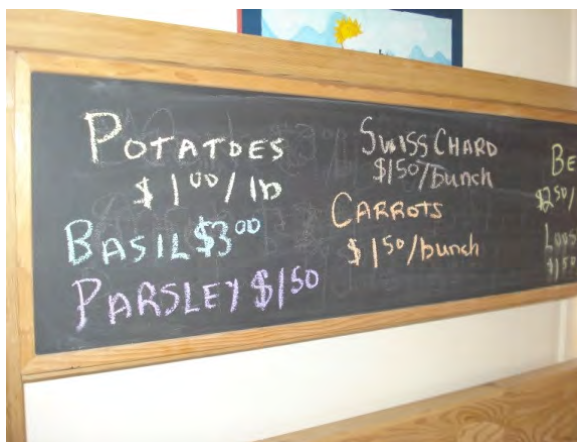 POTATOES
$1.00/lb
BASIL $3.00
PARSLEY $1.50
SWISS CHARD
$1.50/bunch
CARROTS
$1.50/bunch
BE
$2.50/
$1.50